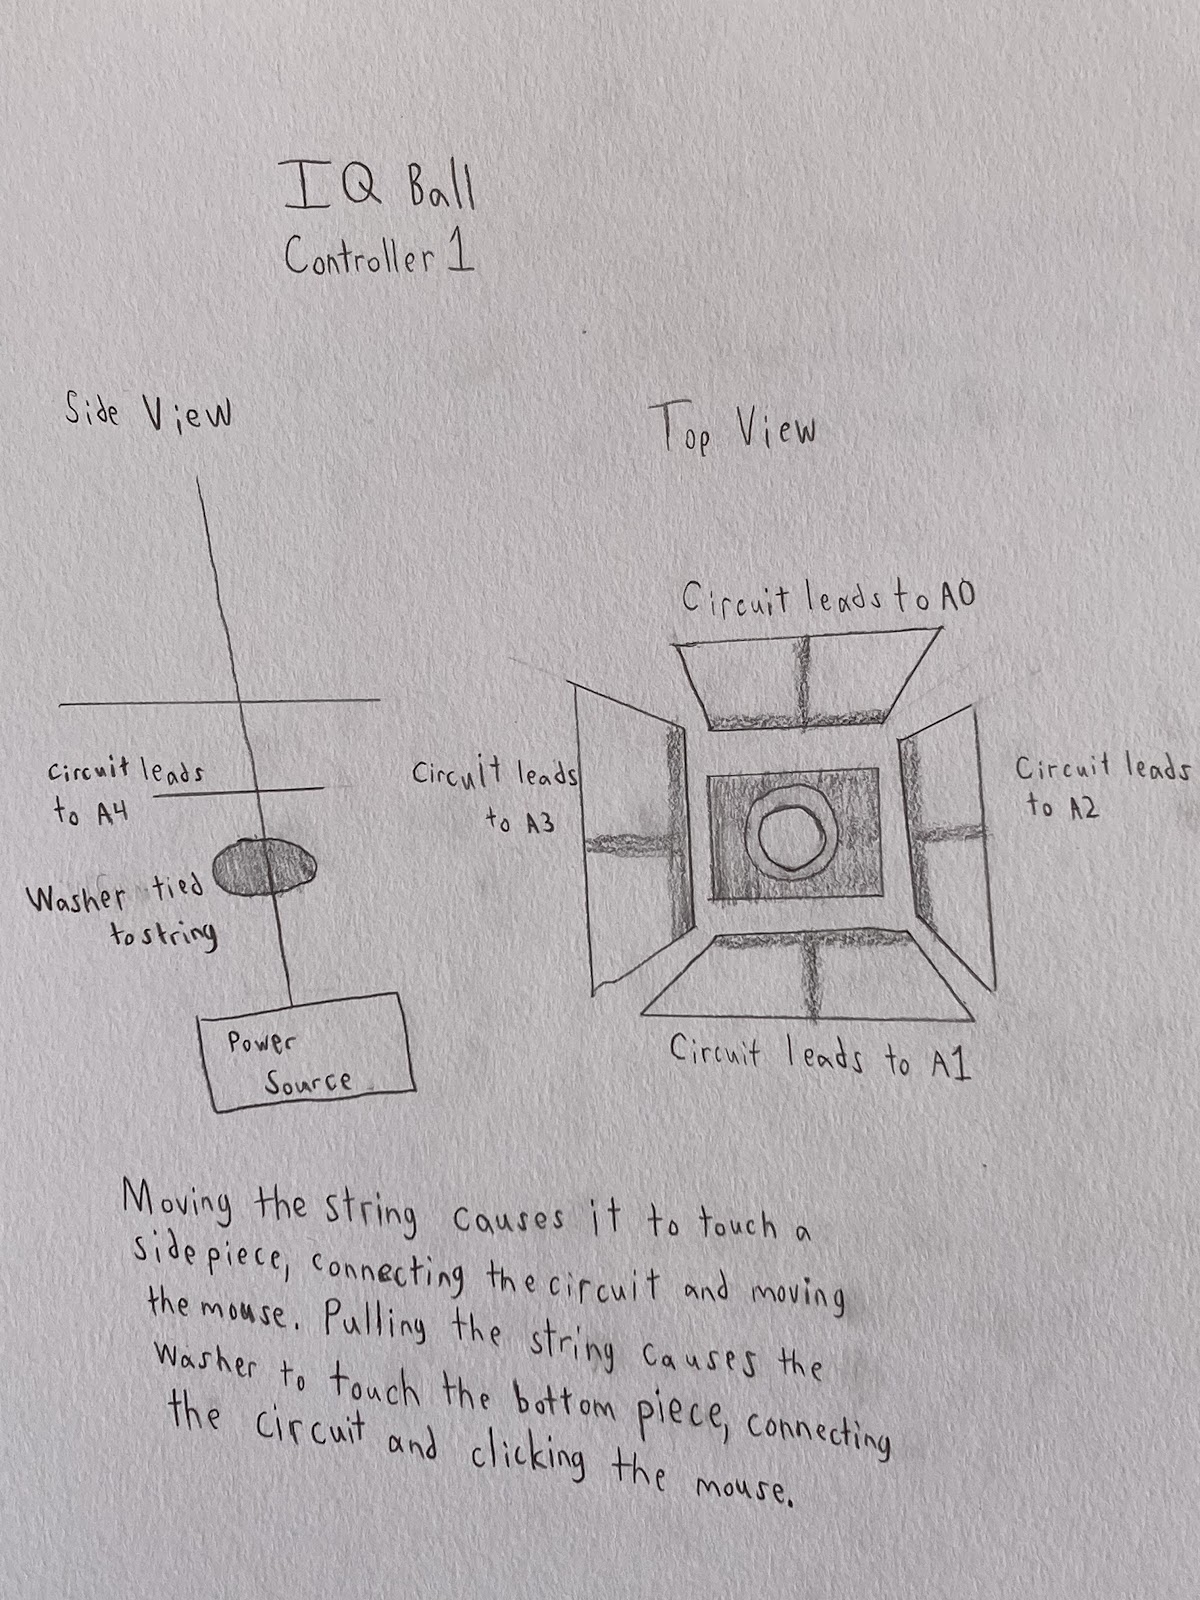 IQ Ball
Controller 1
Side View
Circuit leads
to A4
Washer tied
to string
Power
Source
Top View
Circuit leads to A0
Circuit leads
to A3
Circuit leads
to A2
Circuit leads to A1
Moving the string causes it to touch a
side piece, connecting the circuit and moving
the mouse. Pulling the string causes the
washer to touch the bottom piece, connecting
the circuit and clicking the mouse.